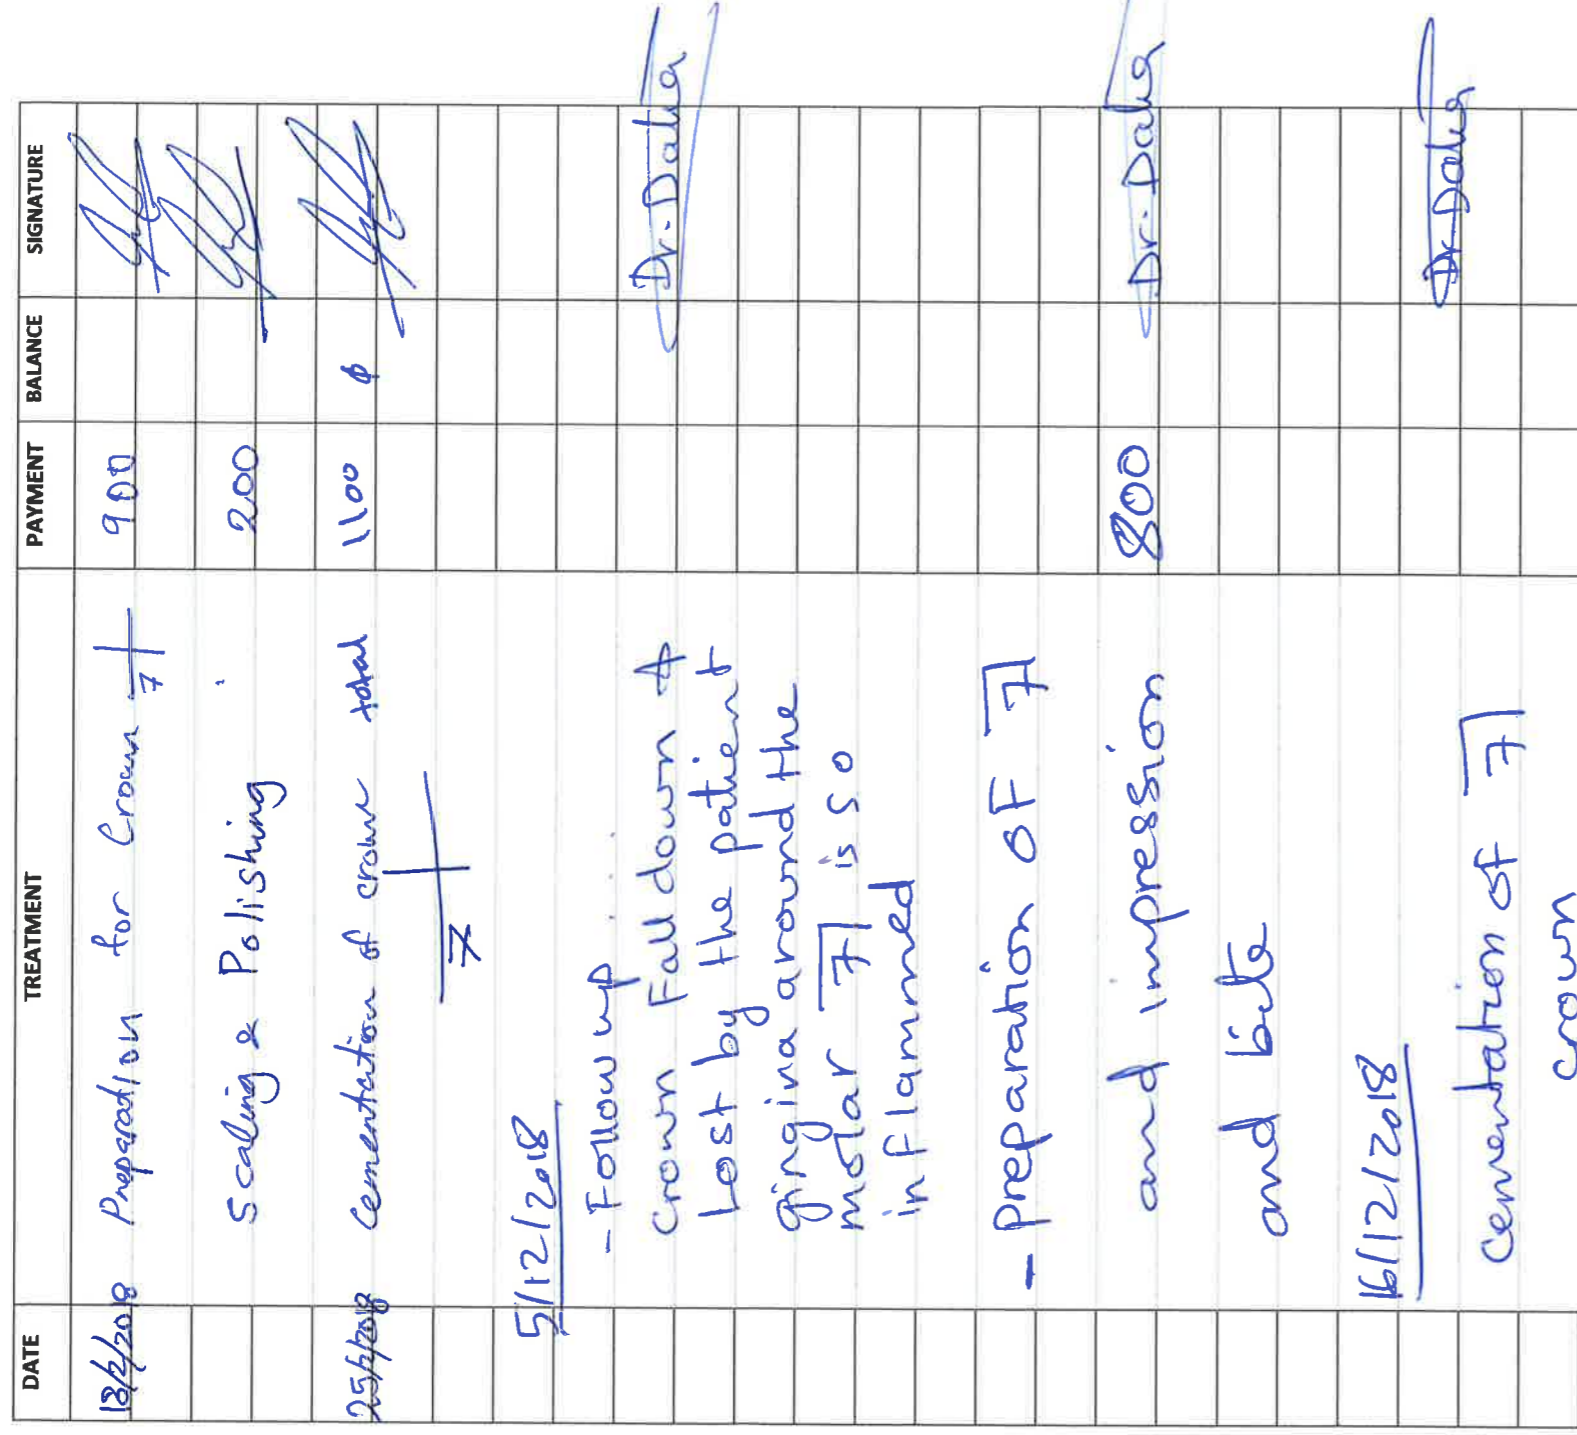 DATE TREATMENT PAYMENT BALANCE SIGNATURE
18/2/2018 Preparation for Crown 7 900
Scaling & Polishing 200
25/2/2018 Cementation of crown total 1100 ϕ
7
5/12/2018
- Follow up
Crown Fall down &
Lost by the patient + Dr. Daha
gingina around the
molar 7 is so
inflammed
- preparation OF 7
and impression 800 Dr. Daha
and bite
16/12/2018
Cementation of 7 Dr. Daha
crown